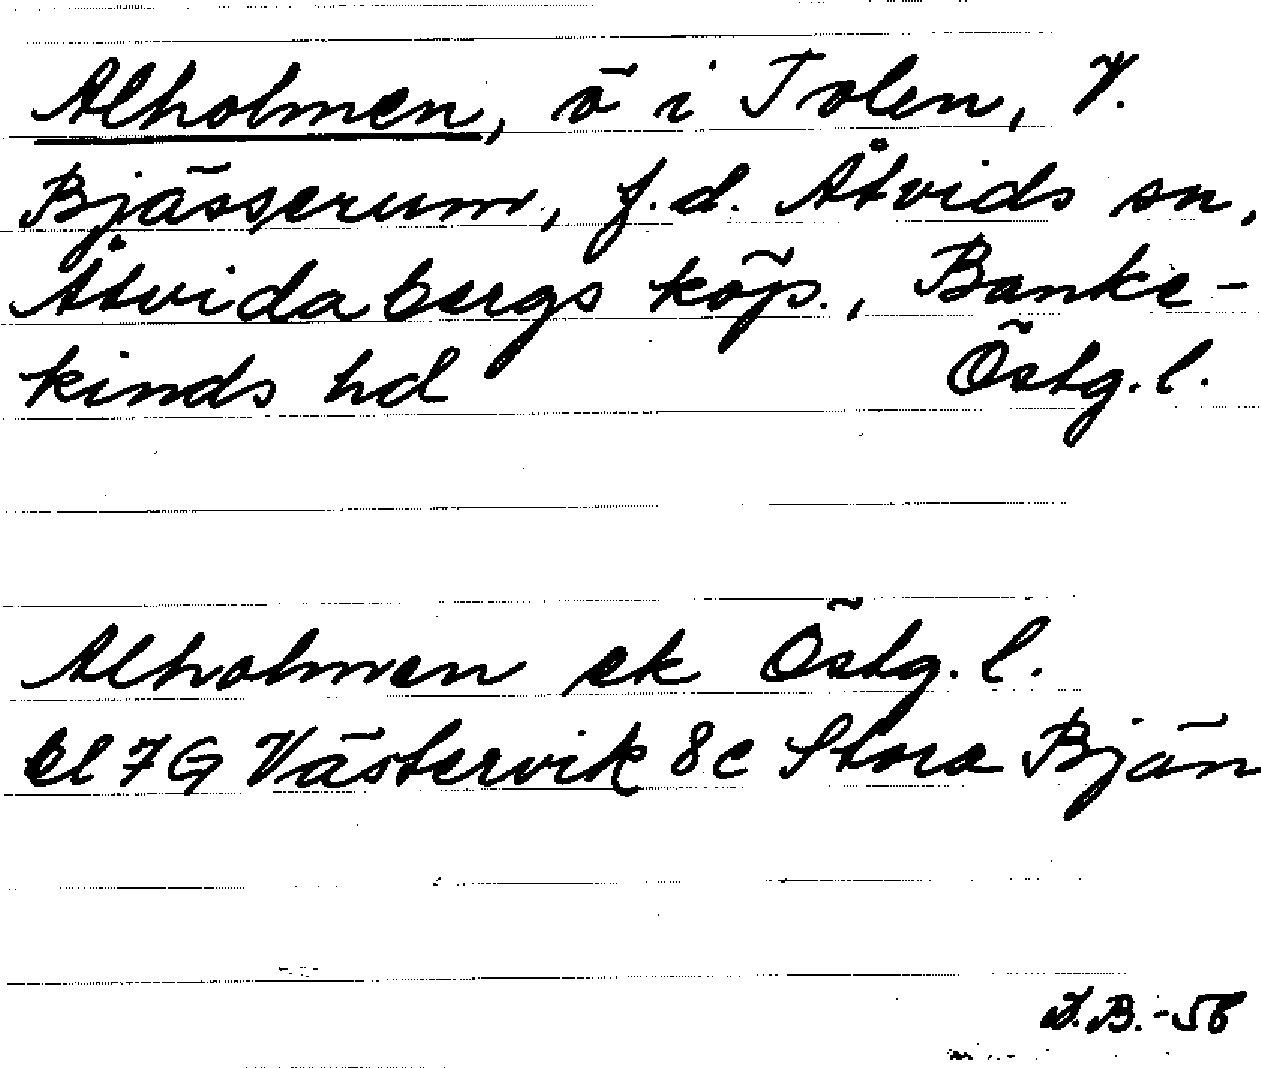 Alholmen, ö i Tolen, V.
Bjässerum, f.d. Åtvids sn,
Åtvidabergs köp., Banke-
kinds hd Östg. l.
Alholmen ek Östg. l.
bl 7G Västervik 8c Stora Bjän
J.B.-56